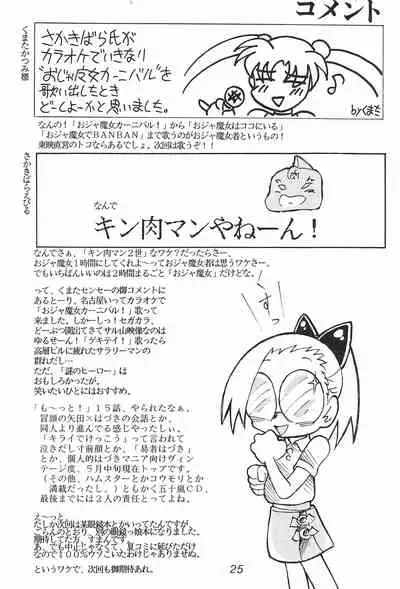 コメント
くまたかつみ様
さかきばら氏が
カラオケでいきなり
"おじゃ魔女カーニバル"を
歌い出したとき
どーしよーかと思いました。
byくまた
なんの!「おジャ魔女カーニバル!」から「おジャ魔女はココにいる」
「おジャ魔女でBANBAN」まで歌うのがおジャ魔女者というもの!
東映直営のトコならあるでしょ。次回は歌うぞ!!
なんで
キン肉マンやねーん!
なんでさぁ、「キン肉マン2世」なワケ?だったらさー、
おジャ魔女1時間にしてくれよ～っておジャ魔女者は思うワケさー。
でもいちばんいいのは2時間まるごと「おジャ魔女」だけどな。
って、くまたセンセーの御コメントに
あるとーり、名古屋いってカラオケで
「おジャ魔女カーニバル!」歌って
来ました。しかーしっ!セガカラ、
どーぶつ園出てきてサル山映像なのは
ゆるせーん!「ゲキテイ!」歌ったら
高層ビルに疲れたサラリーマンの
群れだし…
ただ、「謎のヒーロー」は
おもしろかったが。
笑いたいひとにはおすすめ。
「も～っと!」15話、やられたなぁ。
冒頭の矢田×はづきの会話とか、
同人より進んでる感じやったしぃ。
「キライでけっこう」って言われて
泣きだし寸前顔とか、「易者はづき」
とか、個人的はづきマニア向けヴィン
テージ度、5月中旬現在トップです。
(その他、ハムスターとかコウモリとか
満載だったし、)ともかく五十嵐CD、
最後までには2人の責任とってよね。
え～っと。
たしか次回は某眼鏡本とかいってたんですが、
ごらんのとおり、別の眼鏡っ娘本になりました。
期待してた方、すまんです。
あ、でも中止じゃなくて、夏コミに延びただけ
なので100%ウソこいたわけじゃありませぬ。
というワケで、次回も御期待あれ。
25